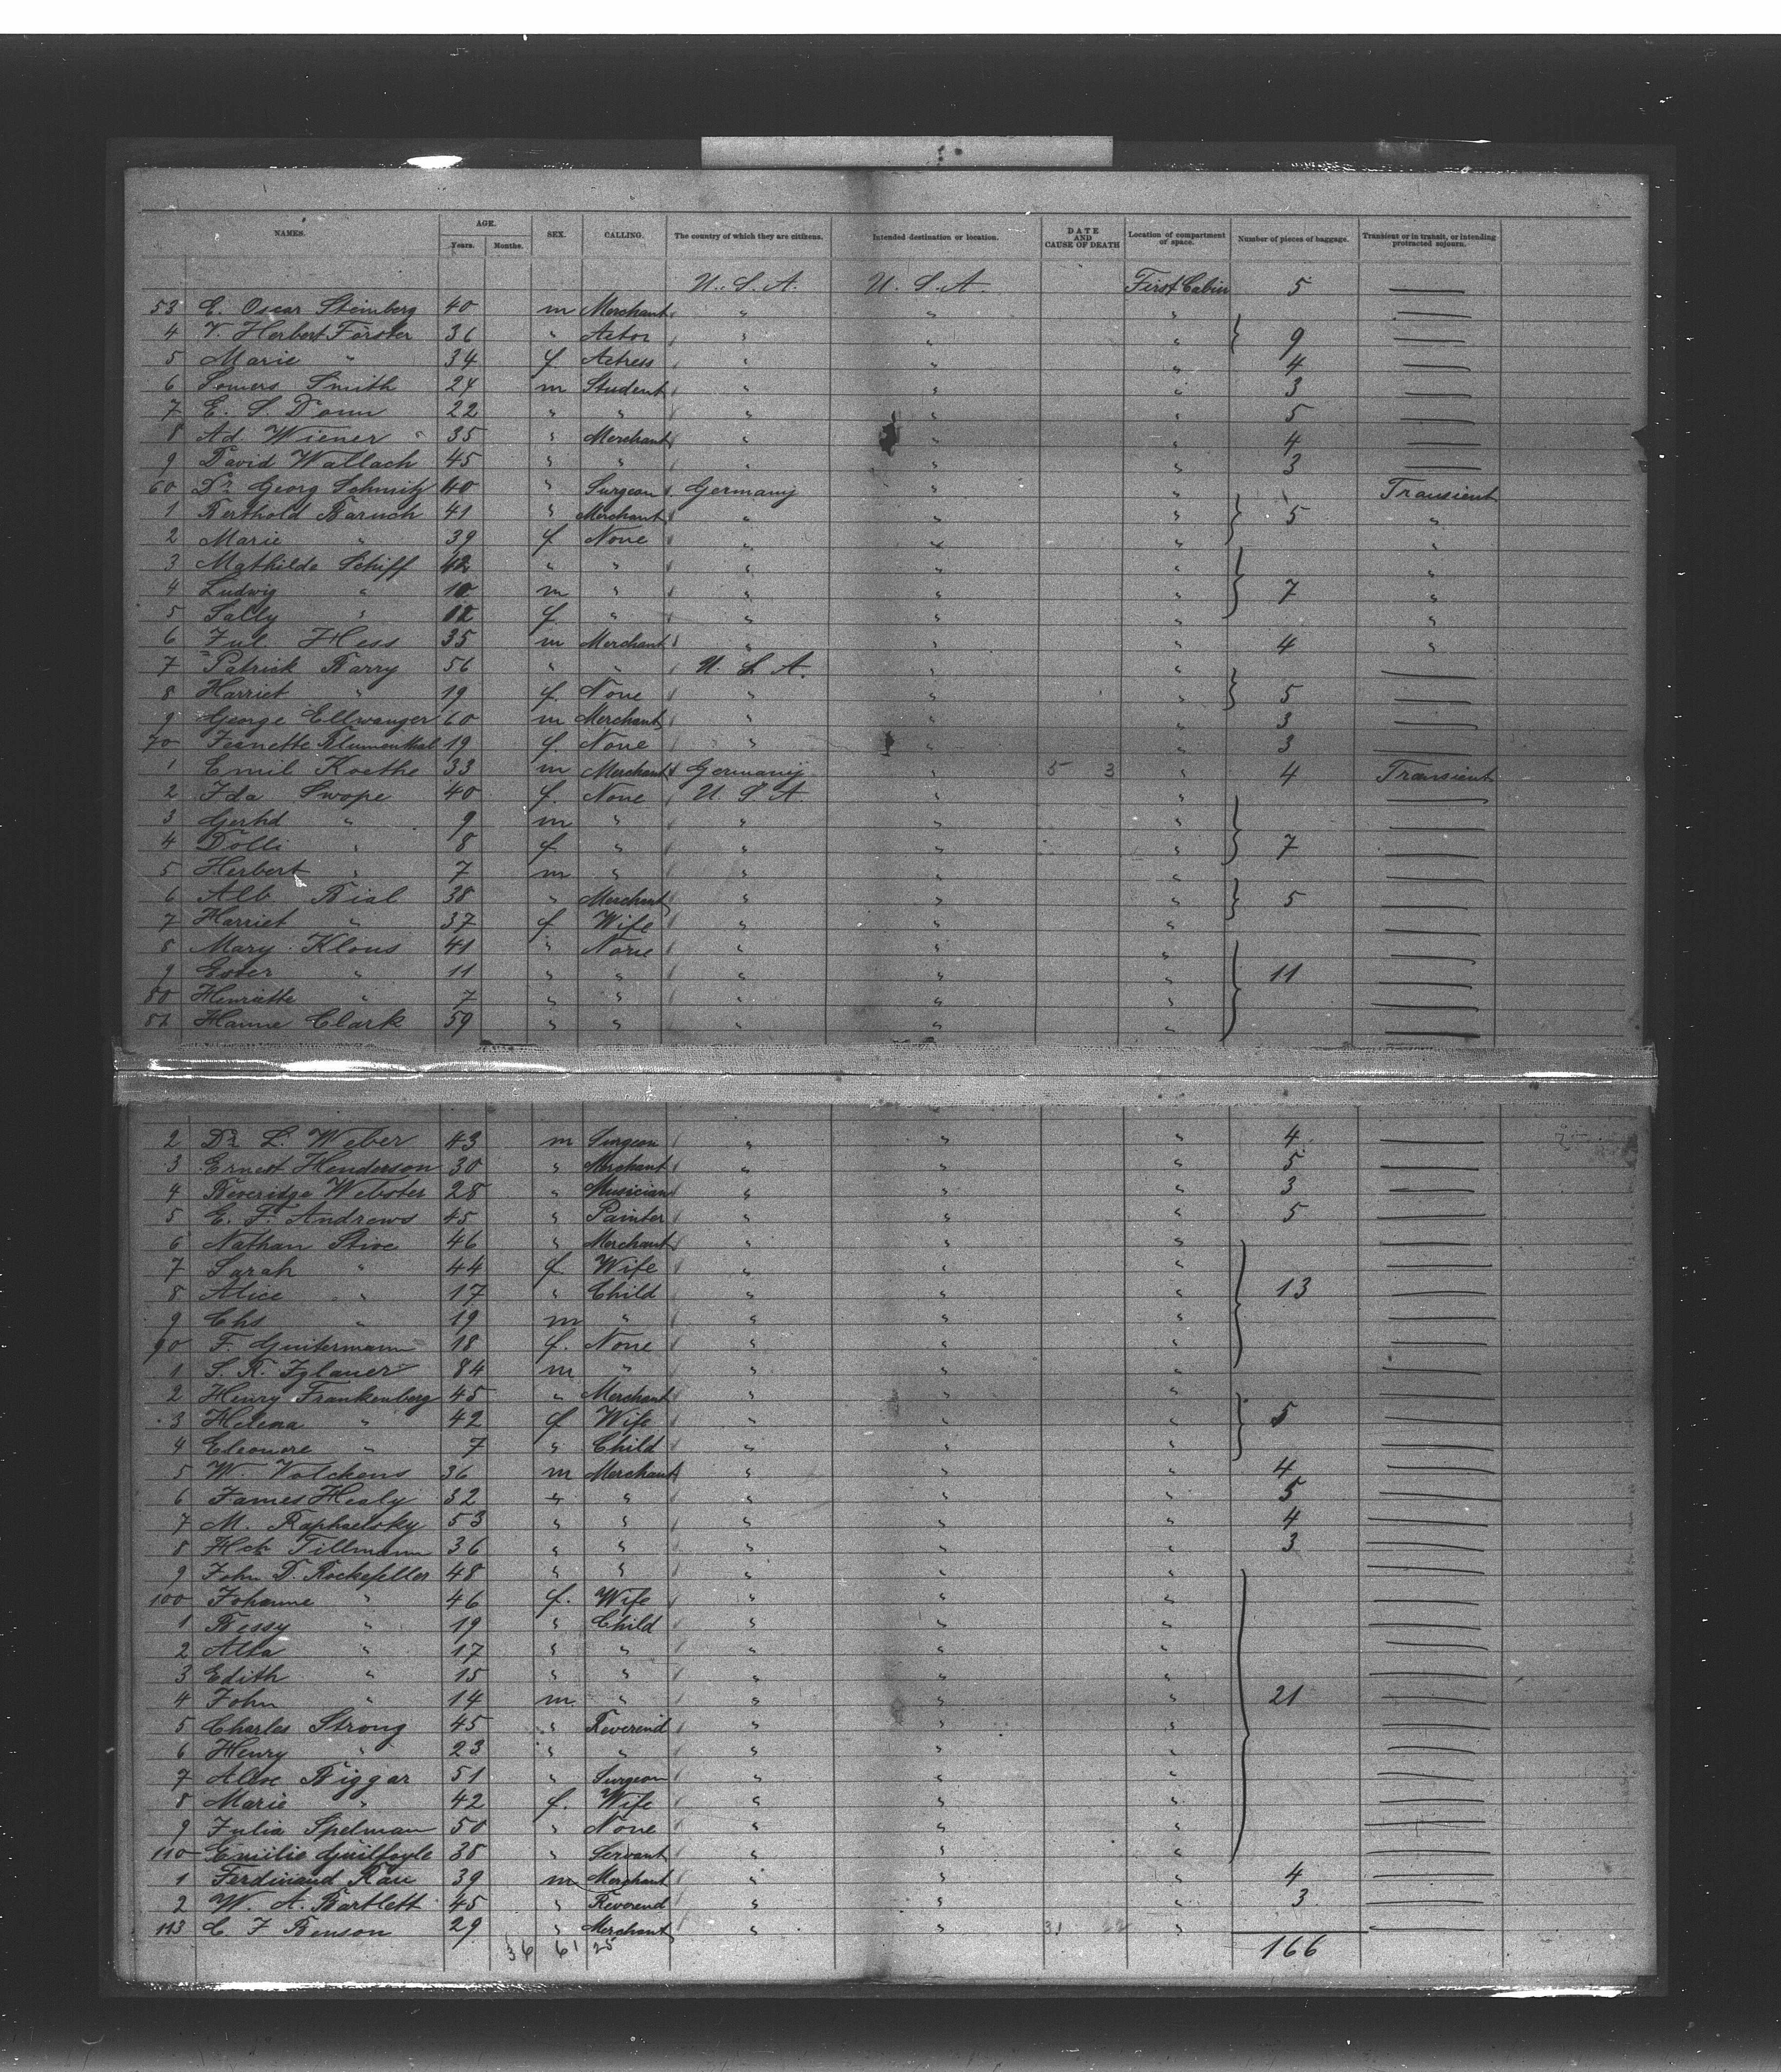 NAMES. AGE. Years. Months. SEX. CALLING. The country of which they are citizens. Intended destination or location. DATE AND CAUSE OF DEATH Location of compartment or space. Number of pieces of baggage. Transient or in transit, or intending protracted sojourn.
U. S. A. U. S. A. First Cabin 5
53 E. Oscar Steinberg 40 m Merchant " " "
4 V. Herbert Förster 36 " Actor " " " 9
5 Marie " 34 f Actress " " " 4
6 Somers Smith 24 m Student " " " 3
7 E. S. Donn 22 " " " " " 5
8 Ad. Wiener 35 " Merchant " " " 4
9 David Wallach 45 " " " " " 3
60 Dr. Georg Schmitz 40 " Surgeon Germany " " Transient
1 Berthold Baruch 41 " Merchant " " " 5 "
2 Marie " 39 f None " " " "
3 Mathilde Schiff 42 " " " " " "
4 Ludwig " 10 m " " " " 7 "
5 Sally " 12 f " " " " "
6 Jul. Hess 35 m Merchant " " " 4 "
7 Patrick Barry 56 " " U. S. A. " "
8 Harriet " 19 f. None " " " 5
9 George Ellwanger 60 m Merchant " " " 3
70 Jeanette Blumenthal 19 f. None " " " 3
1 Emil Koethe 33 m Merchant Germany " 5 3 " 4 Transient
2 Ida Swope 40 f. None U. S. A. " "
3 Gerhd " 9 m " " " "
4 Dolli " 8 f " " " " 7
5 Herbert " 7 m " " " "
6 Alb. Bial 38 " Merchant " " " 5
7 Harriet " 37 f Wife " " "
8 Mary Klous 41 " None " " "
9 Ester " 11 " " " " " 11
80 Henriette " 7 " " " " "
81 Hanne Clark 59 " " " " "
2 Dr. L. Weber 43 m Surgeon " " " 4
3 Ernest Henderson 30 " Merchant " " " 5
4 Beveridge Webster 28 " Musician " " " 3
5 E. F. Andrews 45 " Painter " " " 5
6 Nathan Stix 46 " Merchant " " "
7 Sarah " 44 f. Wife " " "
8 Alice " 17 " Child " " " 13
9 Chs " 19 m " " " "
90 F. Guitermann 18 f. None " " "
1 S. R. Iglauer 84 m " " " "
2 Henry Frankenberg 45 " Merchant " " "
3 Helena " 42 f Wife " " " 5
4 Eleonore " 7 " Child " " "
5 W. Volckens 36 m Merchant " " " 4
6 James Healy 32 " " " " " 5
7 M. Raphaelsky 53 " " " " " 4
8 Tillmann 36 " " " " " 3
9 John D. Rockefeller 48 " " " " "
100 Johanne " 46 f. Wife " " "
1 Bessy " 19 " Child " " "
2 Alta " 17 " " " " "
3 Edith " 15 " " " " "
4 John " 14 m " " " " 21
5 Charles Strong 45 " Reverend " " "
6 Henry " 23 " " " " "
7 Biggar 51 " Surgeon " " "
8 Marie " 42 f. Wife " " "
9 Julia Spelman 50 " None " " "
110 Emilie Guilfoyle 38 " Servant " " "
1 Ferdinand Rau 39 m Merchant " " " 4
2 W. A. Bartlett 45 " Reverend " " " 3
113 C. F. Benson 29 " Merchant " " 31 22 "
36 61 25 166